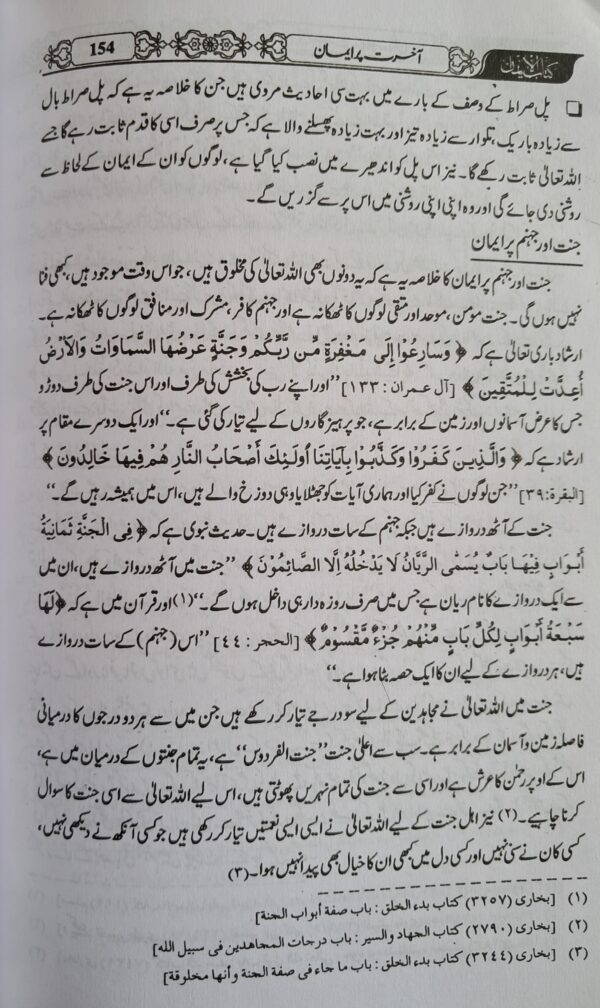 کتاب الایمان
آخرت پر ایمان
154
❑ پل صراط کے وصف کے بارے میں بہت سی احادیث مروی ہیں جن کا خلاصہ یہ ہے کہ پل صراط بال
سے زیادہ باریک، تلوار سے زیادہ تیز اور بہت زیادہ پھسلنے والا ہے کہ جس پر صرف اسی کا قدم ثابت رہے گا جسے
اللہ تعالیٰ ثابت رکھے گا۔ نیز اس پل کو اندھیرے میں نصب کیا گیا ہے، لوگوں کو ان کے ایمان کے لحاظ سے
روشنی دی جائے گی اور وہ اپنی اپنی روشنی میں اس پر سے گزریں گے۔
جنت اور جہنم پر ایمان
جنت اور جہنم پر ایمان کا خلاصہ یہ ہے کہ یہ دونوں بھی اللہ تعالیٰ کی مخلوق ہیں، جو اس وقت موجود ہیں، کبھی فنا
نہیں ہوں گی۔ جنت مومن، موحد اور متقی لوگوں کا ٹھکانہ ہے اور جہنم کافر، مشرک اور منافق لوگوں کا ٹھکانہ ہے۔
ارشاد باری تعالیٰ ہے کہ ﴿ وَسَارِعُوا إِلَى مَغْفِرَةٍ مِّن رَّبِّكُمْ وَجَنَّةٍ عَرْضُهَا السَّمَاوَاتُ وَالْأَرْضُ
أُعِدَّتْ لِلْمُتَّقِينَ ﴾ [آل عمران : ۱۳۳] ’’اور اپنے رب کی بخشش کی طرف اور اس جنت کی طرف دوڑو
جس کا عرض آسمانوں اور زمین کے برابر ہے، جو پرہیزگاروں کے لیے تیار کی گئی ہے۔‘‘ اور ایک دوسرے مقام پر
ارشاد ہے کہ ﴿ وَالَّذِينَ كَفَرُوا وَكَذَّبُوا بِآيَاتِنَا أُولَئِكَ أَصْحَابُ النَّارِ هُمْ فِيهَا خَالِدُونَ ﴾
[البقرة:۳۹] ’’جن لوگوں نے کفر کیا اور ہماری آیات کو جھٹلایا وہی دوزخ والے ہیں، اس میں ہمیشہ رہیں گے۔‘‘
جنت کے آٹھ دروازے ہیں جبکہ جہنم کے سات دروازے ہیں۔ حدیث نبوی ہے کہ ﴿ فِى الْجَنَّةِ ثَمَانِيَةُ
أَبْوَابٍ فِيهَا بَابٌ يُسَمَّى الرَّيَّانُ لَا يَدْخُلُهُ إِلَّا الصَّائِمُوْنَ ﴾ ’’جنت میں آٹھ دروازے ہیں، ان میں
سے ایک دروازے کا نام ریان ہے جس میں صرف روزہ دار ہی داخل ہوں گے۔‘‘(۱) اور قرآن میں ہے کہ ﴿لَهَا
سَبْعَةُ أَبْوَابٍ لِكُلِّ بَابٍ مِّنْهُمْ جُزْءٌ مَّقْسُومٌ ﴾ [الحجر : ٤٤] ’’اس (جہنم) کے سات دروازے
ہیں، ہر دروازے کے لیے ان کا ایک حصہ بٹا ہوا ہے۔‘‘
جنت میں اللہ تعالیٰ نے مجاہدین کے لیے سو درجے تیار کر رکھے ہیں جن میں سے ہر دو درجوں کا درمیانی
فاصلہ زمین و آسمان کے برابر ہے۔ سب سے اعلیٰ جنت ’’جنت الفردوس‘‘ ہے، یہ تمام جنتوں کے درمیان میں ہے،
اس کے اوپر رحمٰن کا عرش ہے اور اسی سے جنت کی تمام نہریں پھوٹتی ہیں، اس لیے اللہ تعالیٰ سے اسی جنت کا سوال
کرنا چاہیے۔(۲) نیز اہل جنت کے لیے اللہ تعالیٰ نے ایسی ایسی نعمتیں تیار کر رکھی ہیں جو کسی آنکھ نے دیکھی نہیں،
کسی کان نے سنی نہیں اور کسی دل میں کبھی ان کا خیال بھی پیدا نہیں ہوا۔(۳)
(۱) [بخاری (۳۲۵۷) کتاب بدء الخلق : باب صفة أبواب الجنة]
(۲) [بخاری (۲۷۹۰) کتاب الجهاد والسير : باب درجات المجاهدين فى سبيل الله]
(۳) [بخاری (۳۲۴۴) کتاب بدء الخلق : باب ما جاء فى صفة الجنة وأنها مخلوقة]